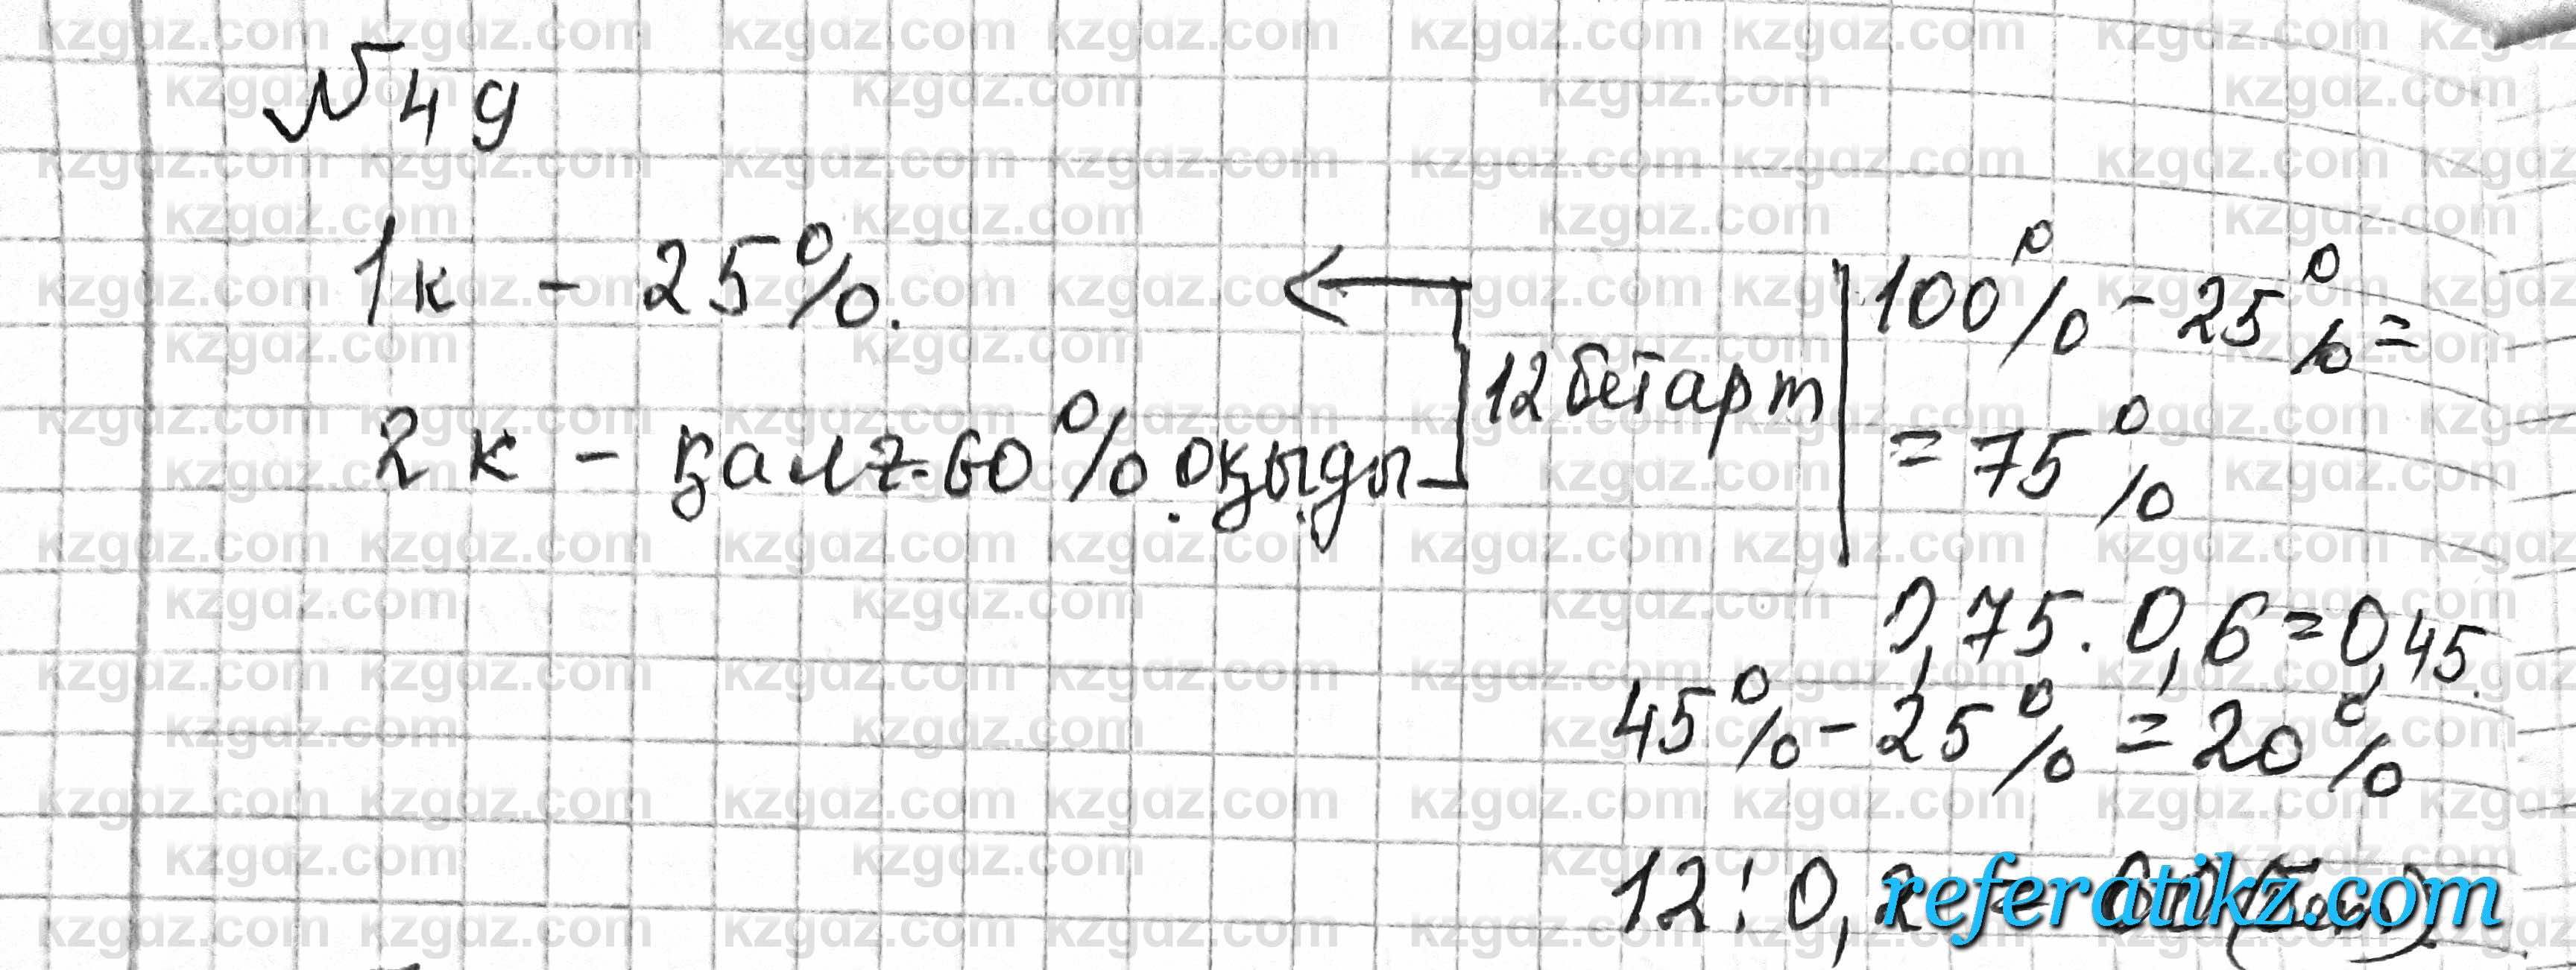 №49
1к - 25%.
2 к - қалғ. 60% оқыды
12 бет арт
100% - 25% =
= 75%
0,75 · 0,6 = 0,45.
45% - 25% = 20%
12 : 0,2
referatikz.com
kzgdz.com